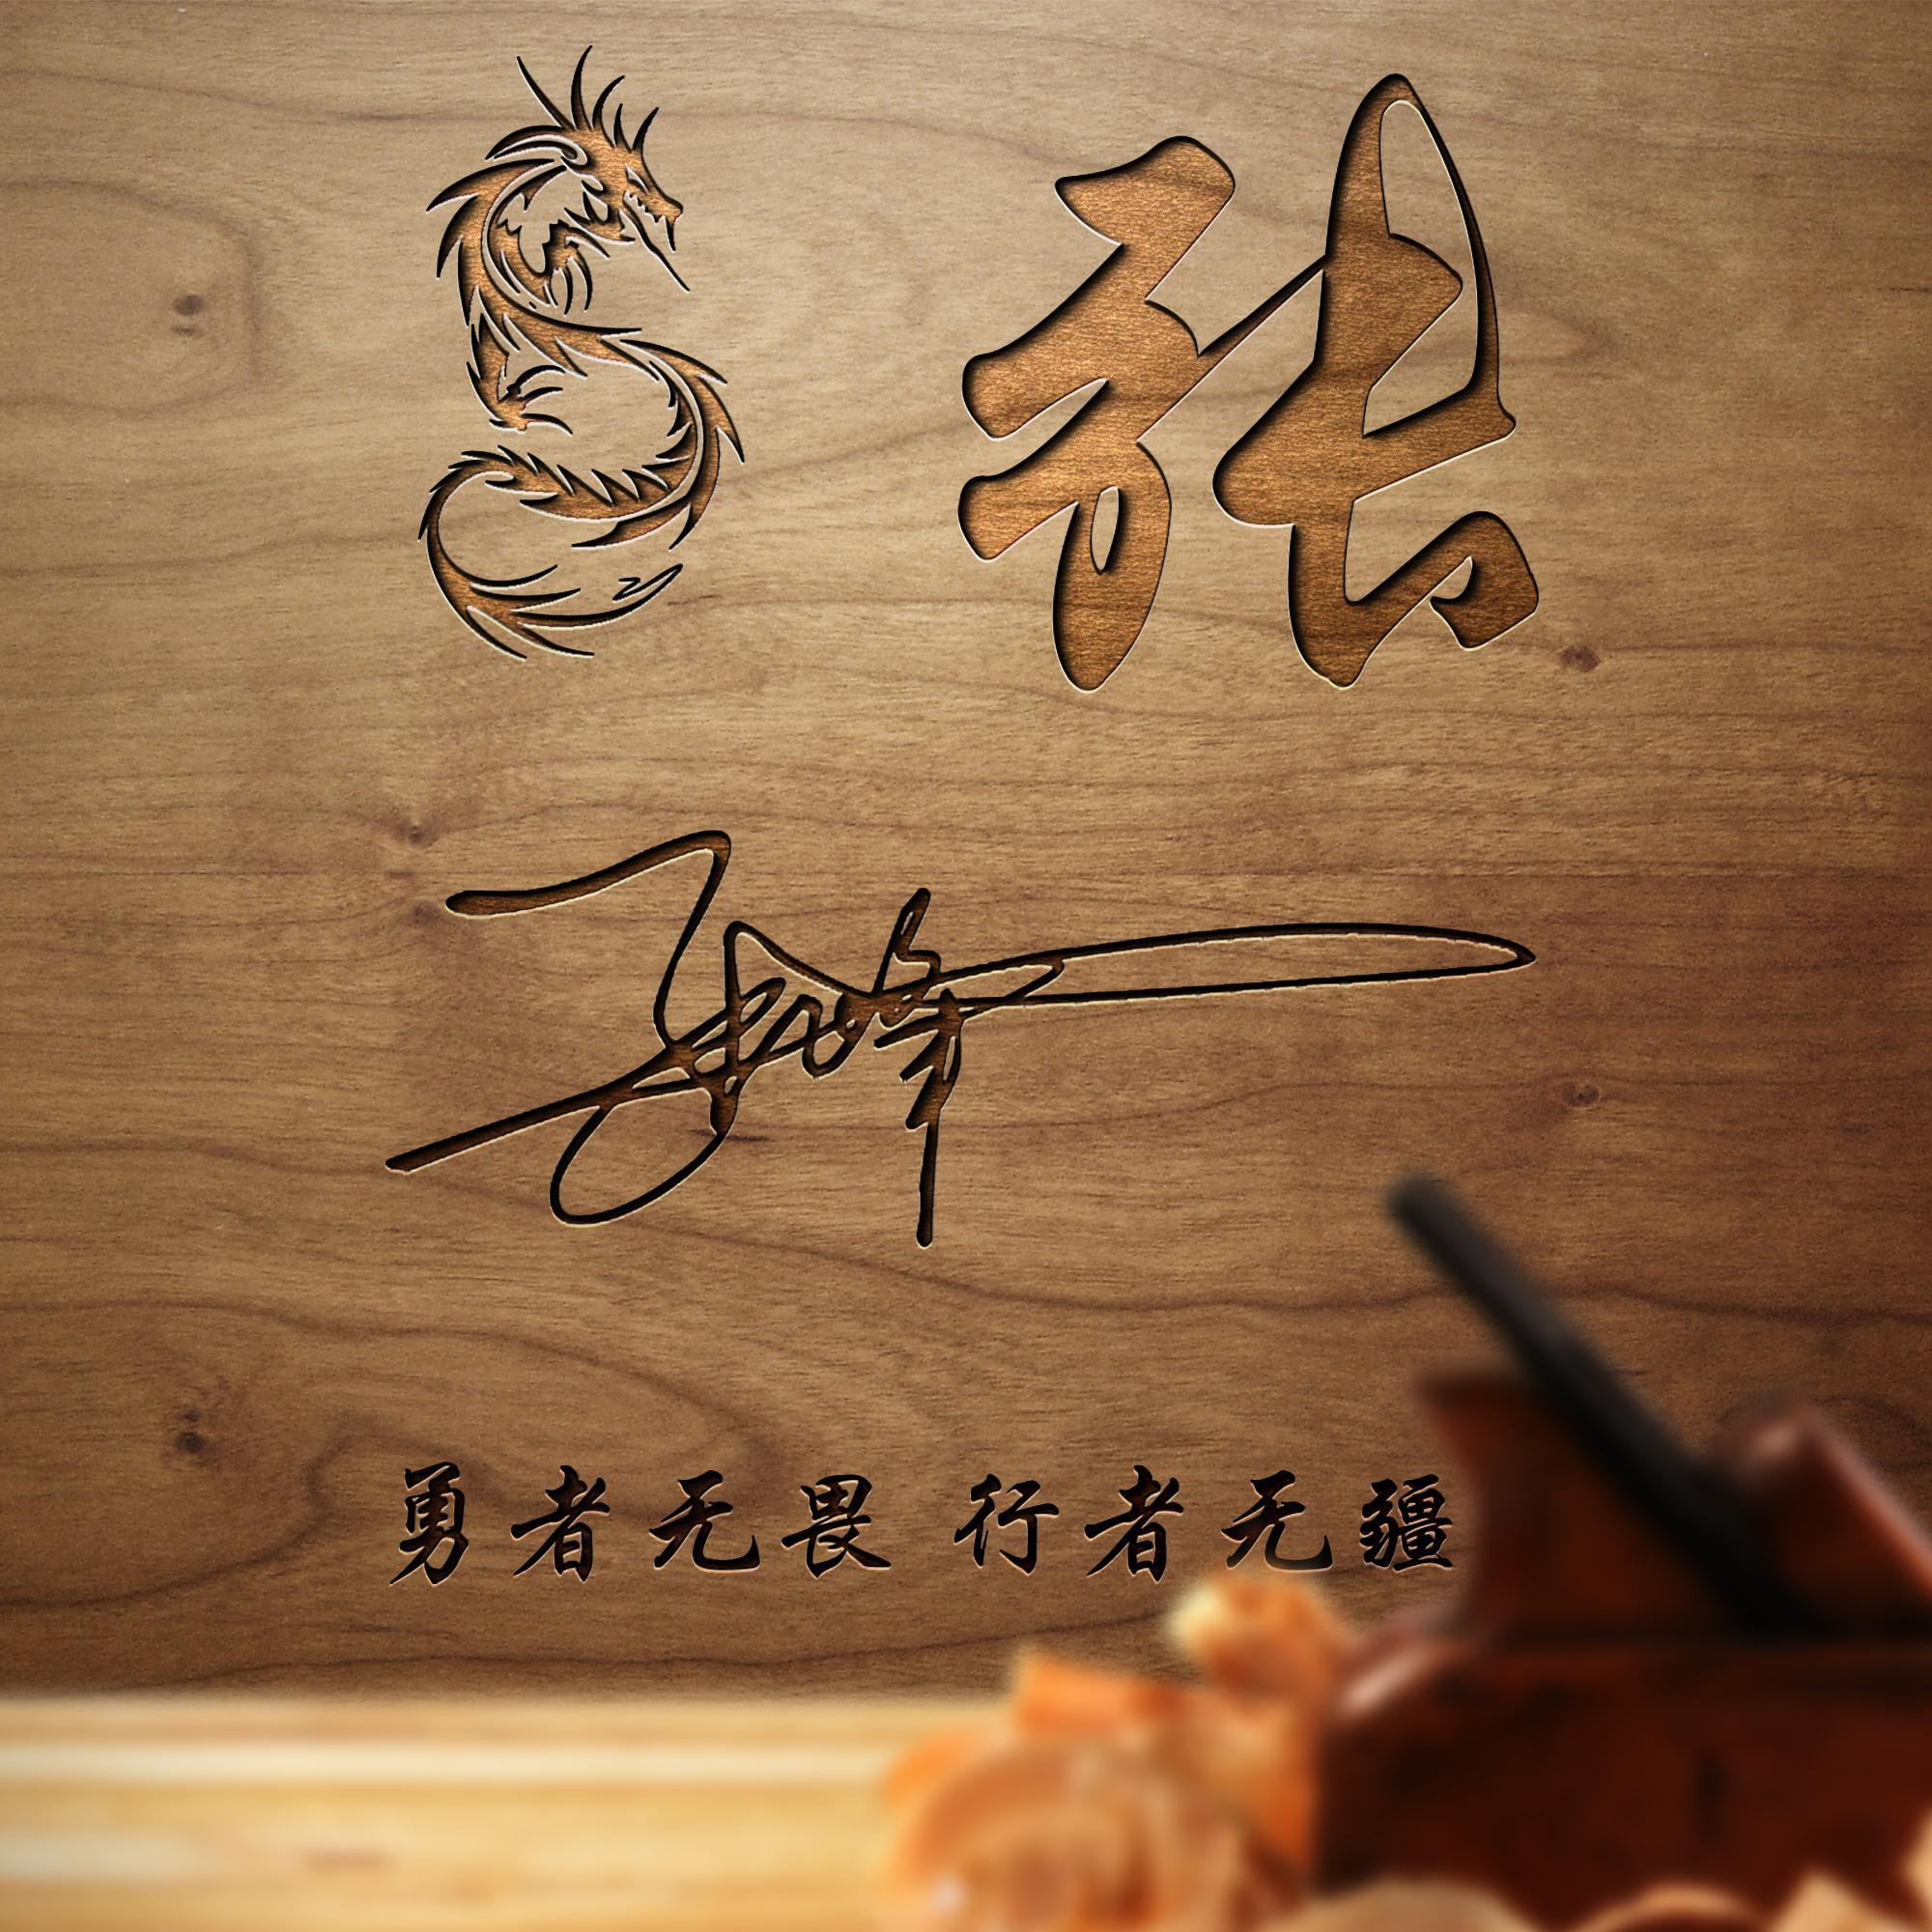 张
勇者无畏 行者无疆